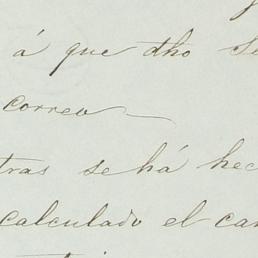 á que dho Se
correo
tras se há hec
calculado el can